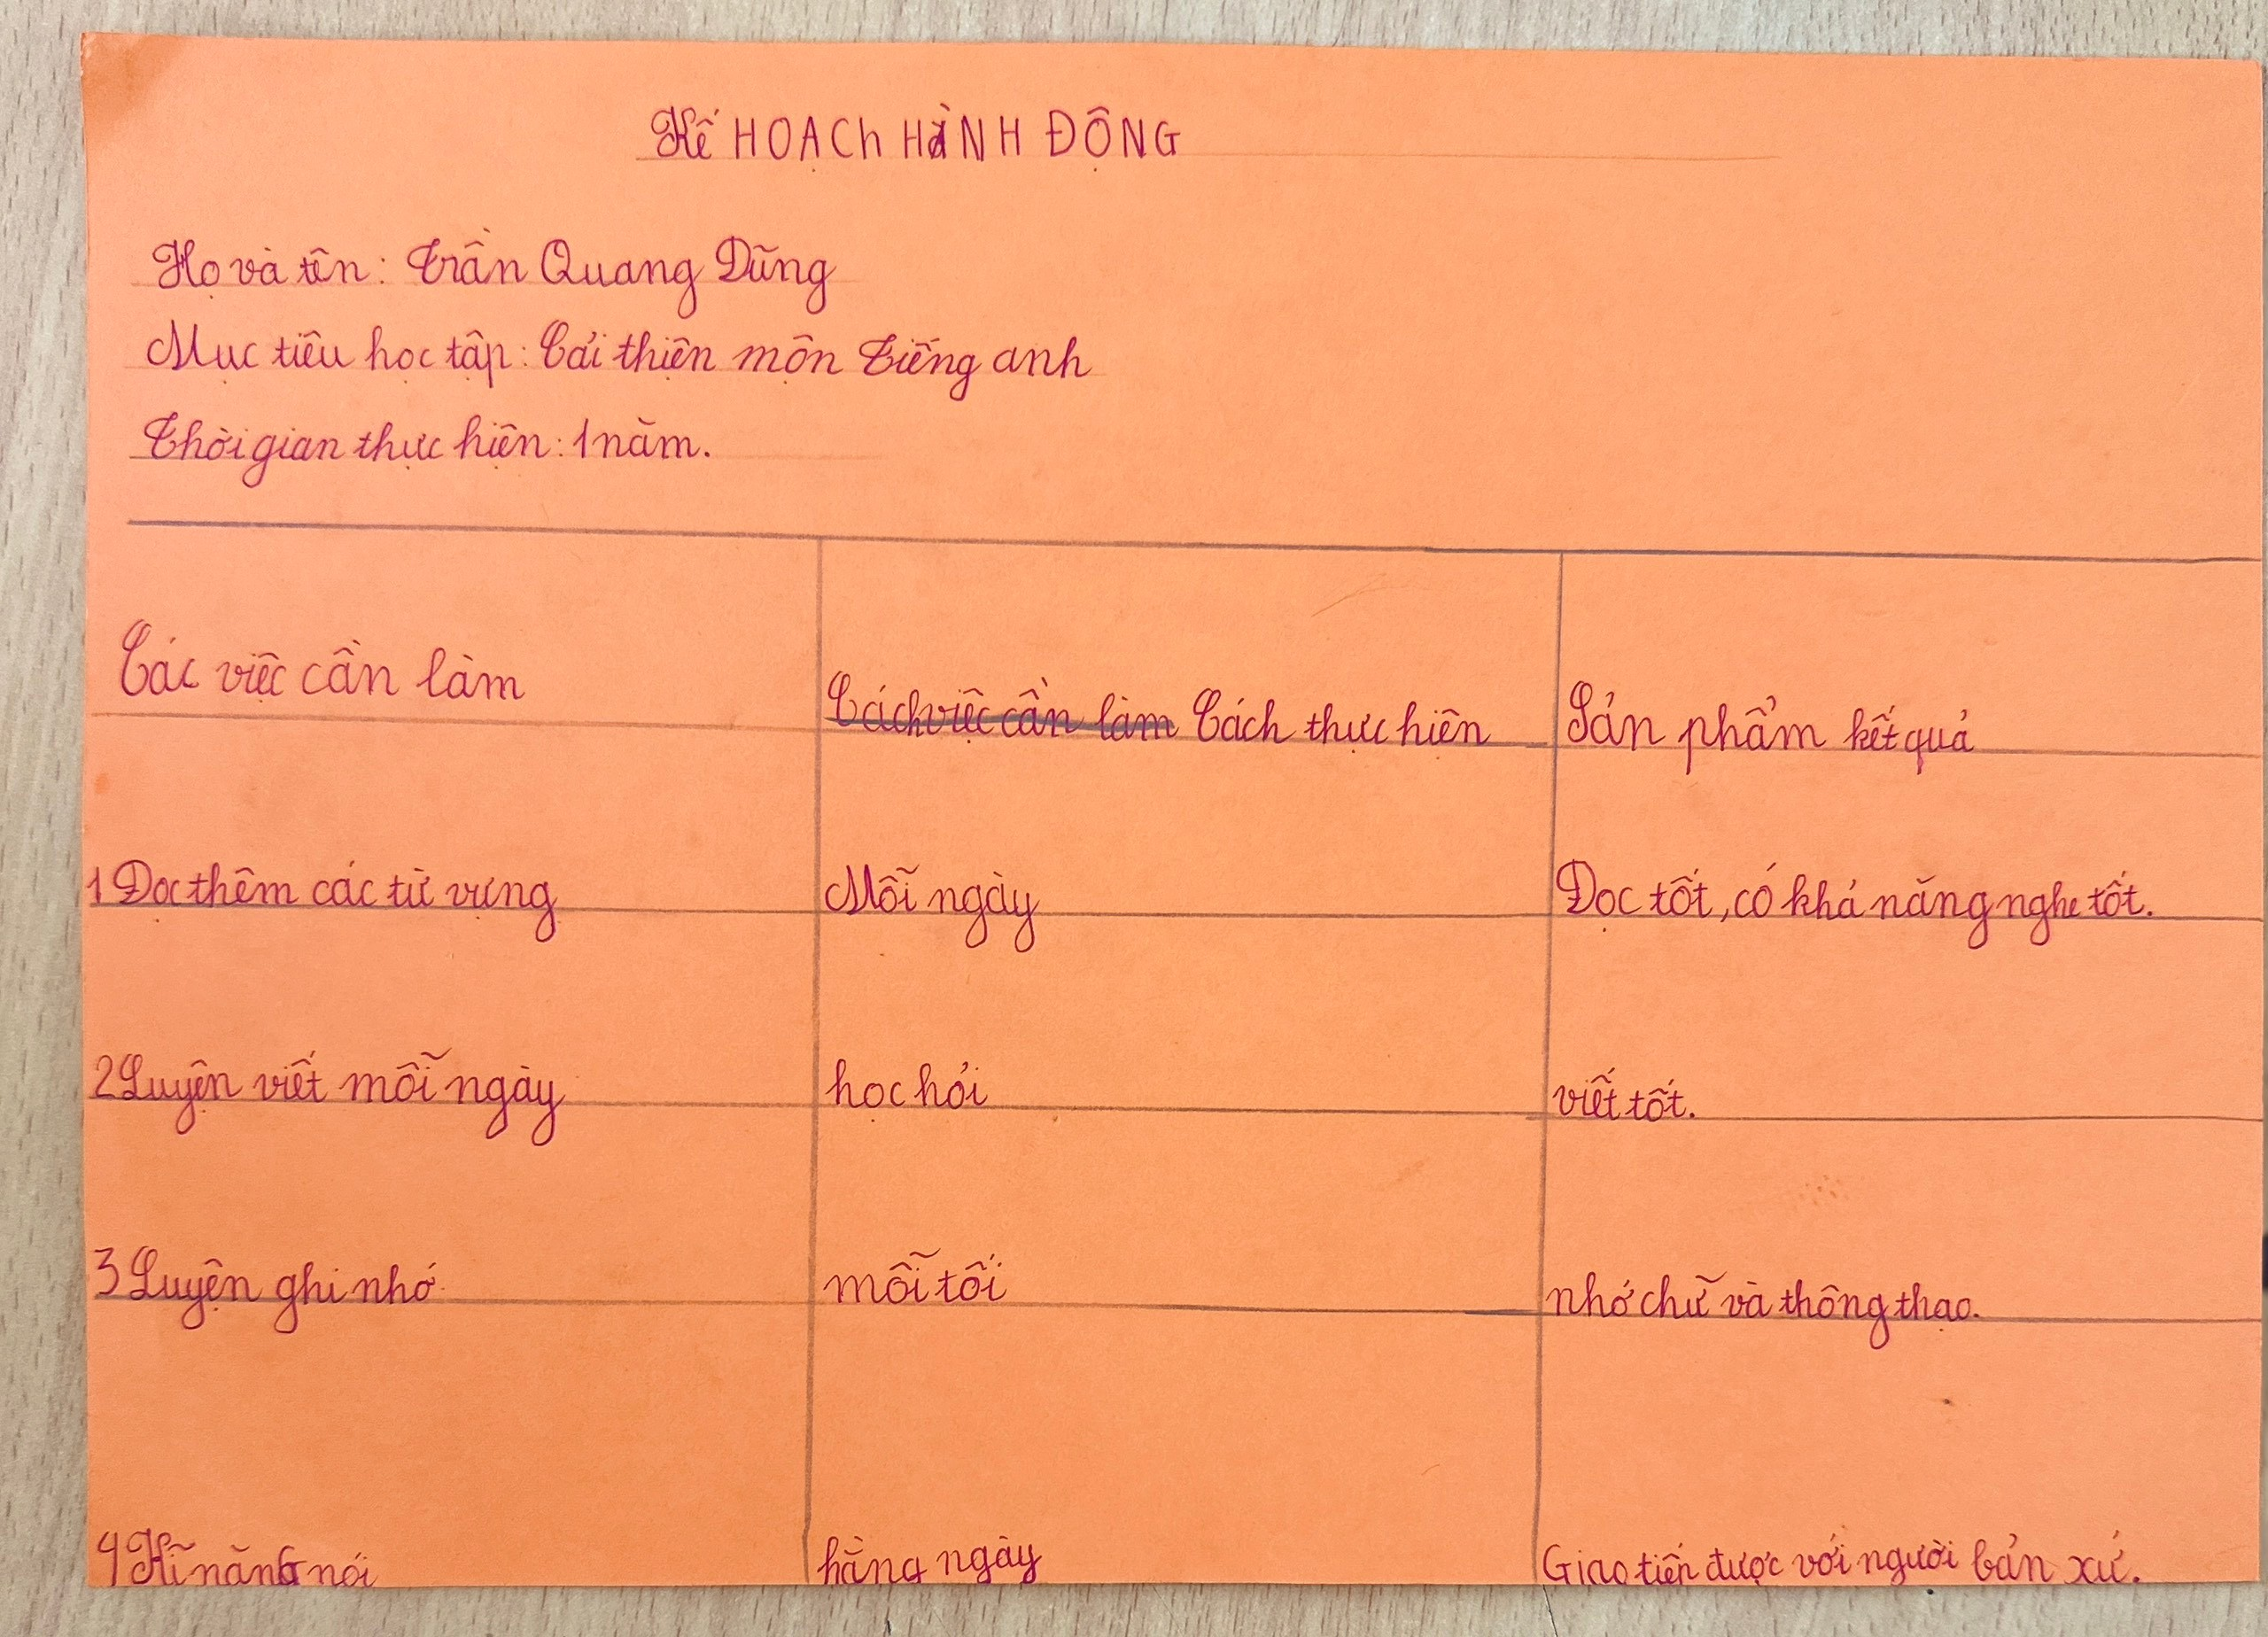 Kế HOẠCh HÀNH ĐỘNG
Họ và tên: Trần Quang Dũng
Mục tiêu học tập: Cải thiện môn Tiếng anh
Thời gian thực hiện: 1 năm.
Các việc cần làm
Cách việc cần làm Cách thực hiện
Sản phẩm kết quả
1 Đọc thêm các từ vựng
Mỗi ngày
Đọc tốt, có khả năng nghe tốt.
2 Luyện viết mỗi ngày
học hỏi
viết tốt.
3 Luyện ghi nhớ
mỗi tối
nhớ chữ và thông thạo.
4 Kĩ năng nói
hằng ngày
Giao tiếp được với người bản xứ.